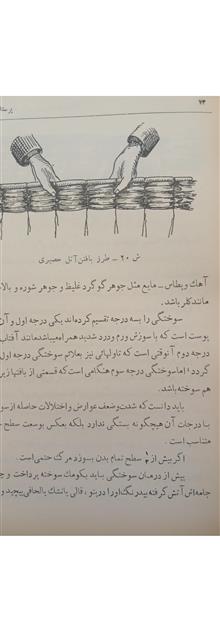 ۷۴
ش ۲۰ ـ طرز بافتن آتل حصیری
آهك و پطاس ـ مایع مثل جوهر گوگرد غلیظ و جوهر شوره و بالا
مانند کلر باشد.
سوختگی را بسه درجه تقسیم کرده‌اند یکی درجه اول و آن
پوست است که با سوزش ورم و درد شدید همراه میباشد مانند آفتاب
درجه دوم آنوقتی است که تاولهائی نیز بعلائم سوختگی درجه اول
گردد ؛ اما سوختگی درجه سوم هنگامی است که قسمتی از بافتها زیر
هم سوخته باشد.
باید دانست که شدت وضعف عوارض و اختلالات حاصله از سو
با درجات آن هیچگونه بستگی ندارد بلکه بعکس بوسعت سطح
متناسب است .
اگر بیش از سطح تمام بدن بسوزد مرگ حتمی است .
پیش از درمان سوختگی بباید بکومك سوخته پرداخت و چ
جامه‌اش آتش گرفته بیدرنگ اورا در پتو ، قالی یا تشك یا لحافی پیچید و